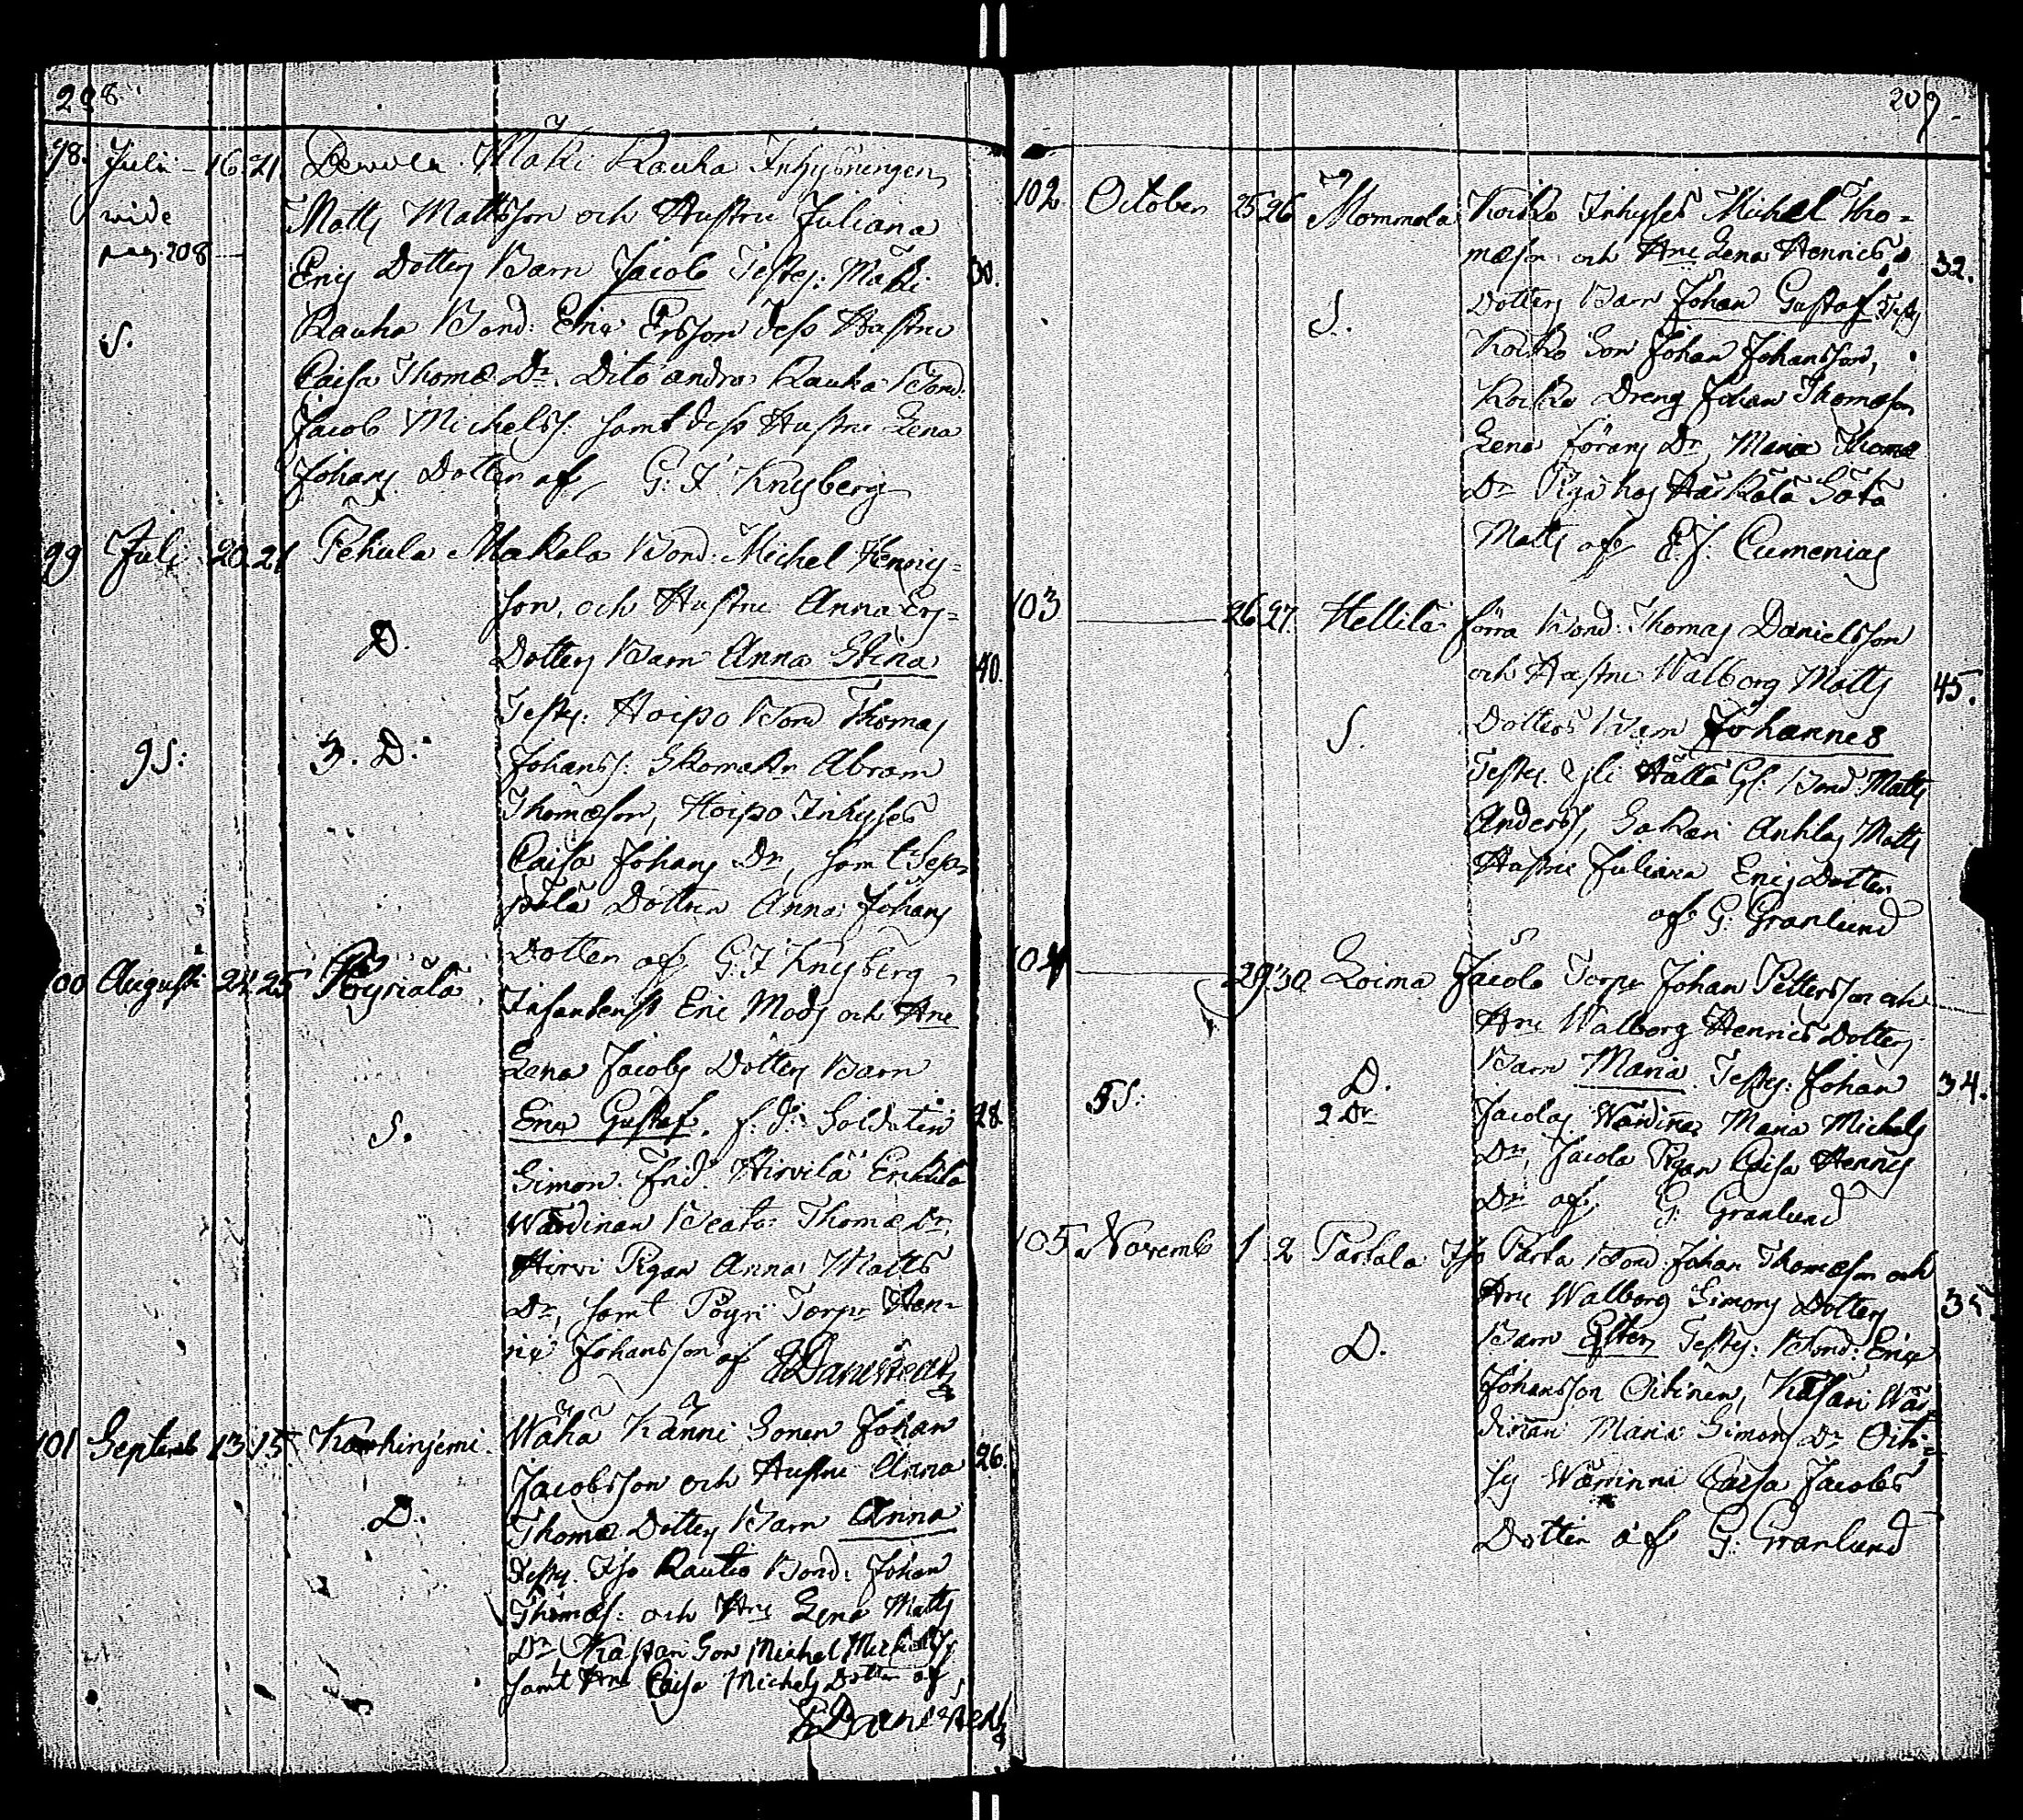 208
98. Juli 16. 21. Rewula Mäki Rauha Inhysningen
wide Matts Mattsson och Hustru Juliana
pag. 208 Erics Dotters Barn Jacob Testes: Mäki 30.
S. Rauha Bond: Eric Ersson dess Hustru
Caisa Thomæ Dr. Dito andra Rauha Bond:
Jacob Michelss: samt dess Hustru Lena
Johans Dotter af G. F. Knyberg
99 Juli 20. 21 Tehiula Mackela Bond: Michel Henrics=
son, och Hustru Anna Ers=
D. Dotters Barn Anna Stina 40.
Testes: Hoipo Bond Thomas
9S: 3. D. Johanss: Skomakr Abram
Thomæson, Hoipo Inhyses
Caisa Johans Dr, samt Sep=
pälä Dottren Anna Johans
Dotter af G. F. Knyberg
100 Augusti 24. 25 Pöyriälä Eric Mods och Hru
Lena Jacobs Dotters Barn
S. Eric Gustaf. f. d. Soldaten 28.
Simon Frid. Hirvilä Erkkilä
Wärdinan Beata Thomæ Dr,
Hirvi Pigan Anna Matts
Dr, samt Pöyri Torpr Hen=
ric Johansson af
101 Septemb 13. 15. Karhinjemi. Wähä Känni Sonen Johan
Jacobsson och Hustru Anna 26.
D. Thomæ Dotters Barn Anna
Testes. Iso Rautio Bond: Johan
Thomæs: och Hru Lena Matts
Dr Kaspari Son Michel Michelss
samt Hru Caisa Michels Dotter af
209
102 October 25 26 Mommola Koiko Inhyses Michel Tho=
mæson och Hru Lena Henrics 32.
S. Dotters Barn Johan Gustaf Testes
Koiko Son Johan Johansson,
Koiko Dreng Johan Thomæson
Lena Görans Dr, Maria Thomæ
Dr Piga hos Häikälä Sätö
Matts af E J. Cumenius
103 26 27. Hellilä förra Bond: Thomas Danielsson
och Hustru Walborg Matts 45.
S. Dotters Barn Johannes
Testes. Yli Hättä Gl. Bond. Matts
Anderss, Sakari Anhlas Matts
Hustru Juliana Erics Dotter
af G: Granlund
104 29. 30 Loima Jacola Torpr Johan Pettersson och
Hru Walborg Henrics Dotters
5S: D. Barn Maria Testes: Johan 34.
2 Dr Jacolas Wärdina Maria Michels
Dr, Jacola Pigan Caisa Henrics
Dr af G: Granlund
105 Novemb 1. 2 Partala Iso Parta Bond Johan Thomæson och
Hru Walborg Simons Dotters 35
D. Barn Ester Testes: Bond: Eric
Johansson Oitinen, Kasari Wär=
dinan Maria Simons Dr Oiti=
Caisa Jacobs
Dotter af G: Granlund